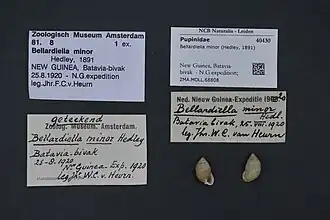 Zoologisch Museum Amsterdam
81. 8 1 ex.
Bellardiella minor
Hedley, 1891
NEW GUINEA, Batavia-bivak
25.8.1920 - N.G.expedition
leg.Jhr.F.C.v.Heurn
NCB Naturalis - Leiden
Pupinidae 40430
Bellardiella minor
(Hedley, 1891)
New Guinea, Batavia-
bivak - N.G.expedition;
ZMA.MOLL.68808
geteekend
Zoölog. Museum, Amsterdam.
Bellardiella minor Hedley
Batavia-bivak
25-8.1920
N. Guinea-Exp. 1920
leg. Jhr. W.C. v. Heurn.
Ned. Nieuw Guinea-Expeditie 1920
Bellardiella minor
Hedl.
Batavia-bivak, 25-VIII-1920
leg. Jhr. W.C. van Heurn